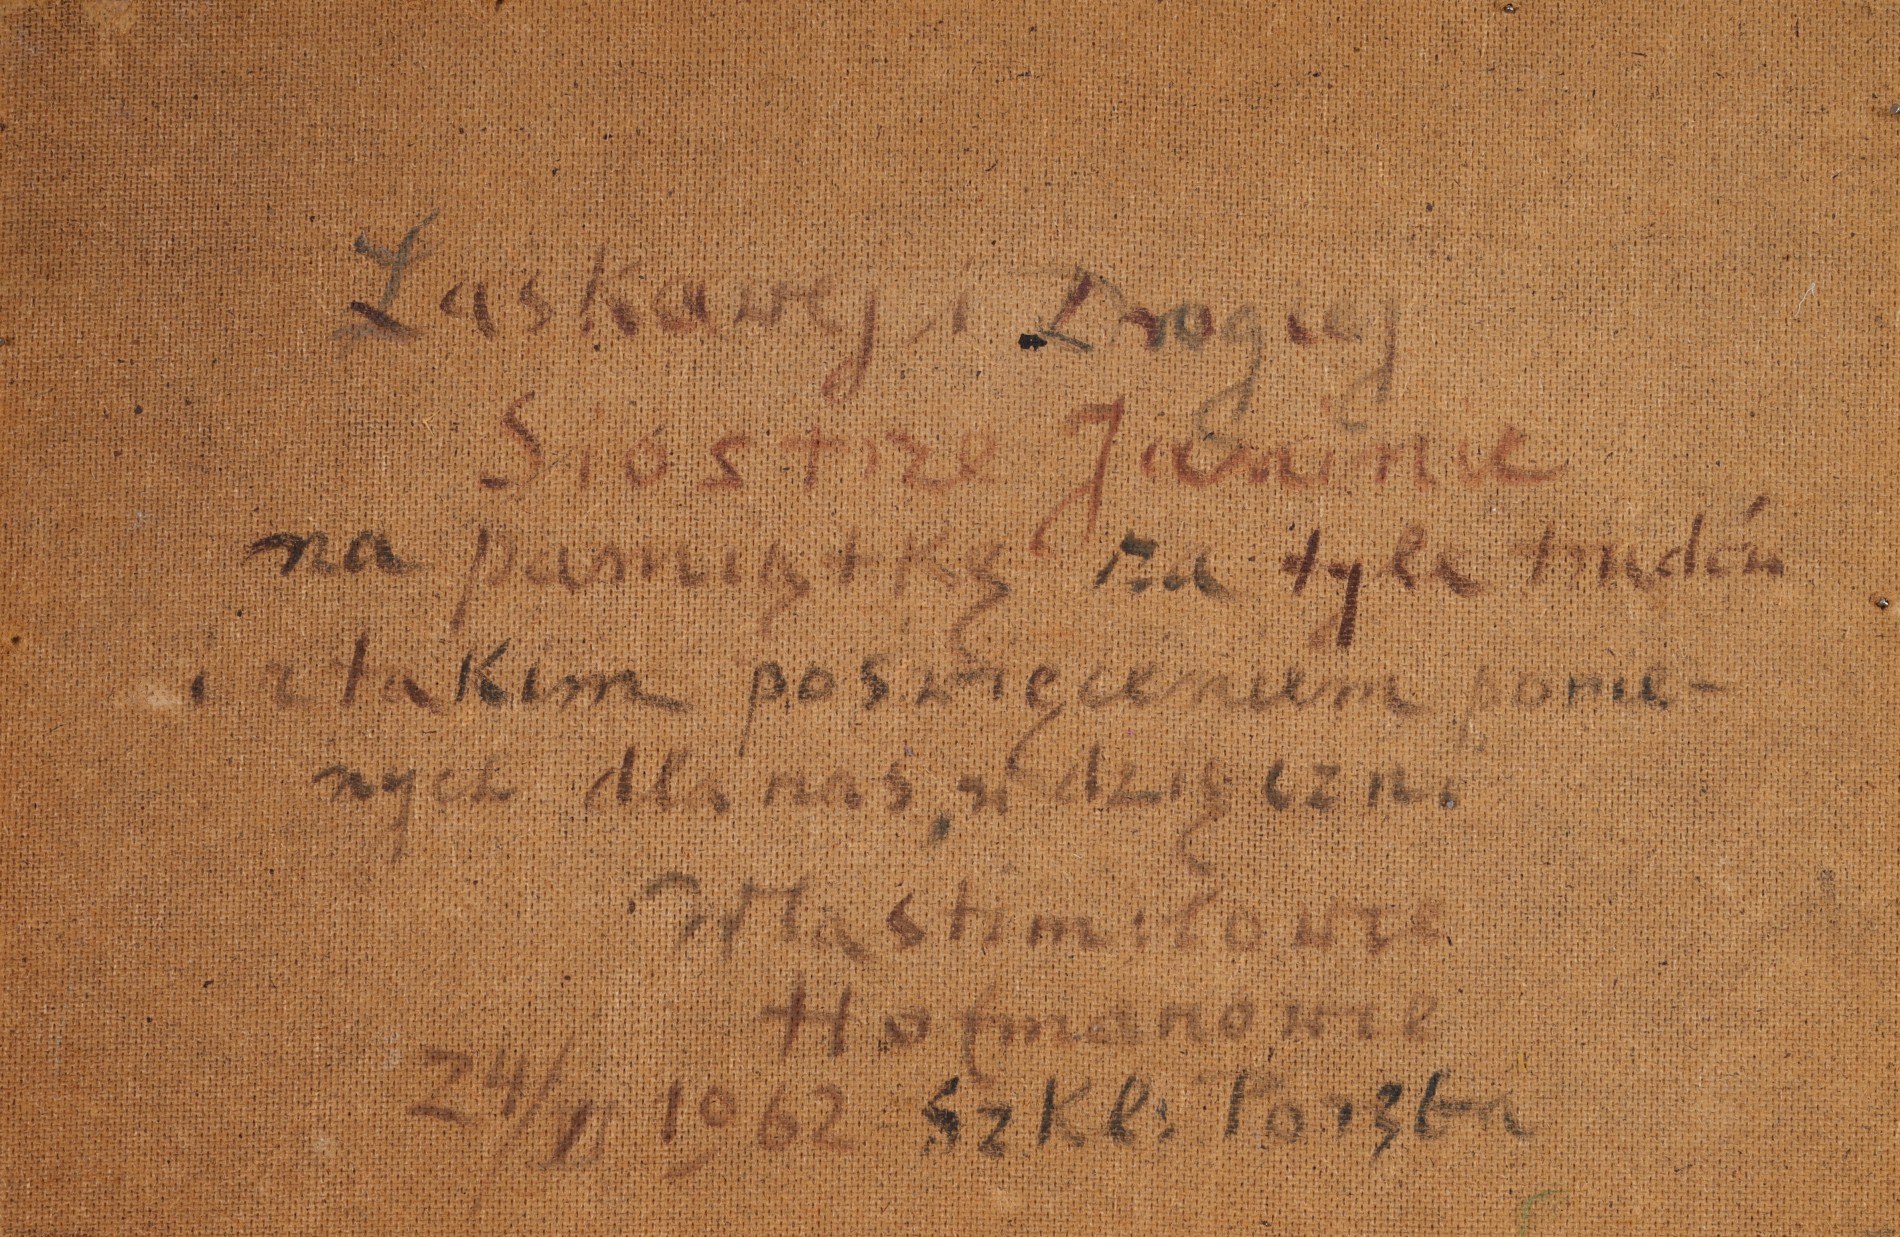 Łaskawej i Drogiej
Sióstrze Janinie
na pamiątkę za tyle trudów
i z takim poswięceniem ponie-
nych dla nas, wdzięczni
Wlastimiłowie
Hofmanowie
24/VI 1962 Szkl. Poręba